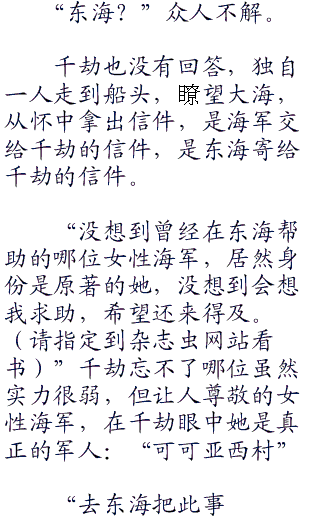 “东海？”众人不解。
千劫也没有回答，独自
一人走到船头，瞭望大海，
从怀中拿出信件，是海军交
给千劫的信件，是东海寄给
千劫的信件。
“没想到曾经在东海帮
助的哪位女性海军，居然身
份是原著的她，没想到会想
我求助，希望还来得及。
（请指定到杂志虫网站看
书）”千劫忘不了哪位虽然
实力很弱，但让人尊敬的女
性海军，在千劫眼中她是真
正的军人：“可可亚西村”
“去东海把此事